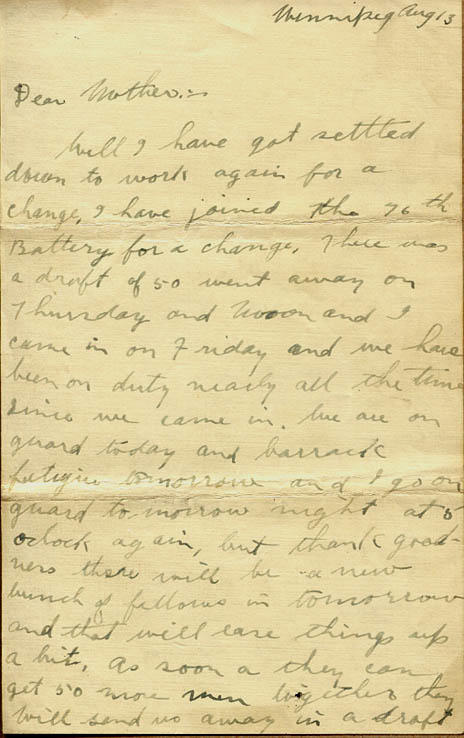 Winnipeg Aug 13
Dear Mother:-
Will I have got settled
down to work again for a
change, I have joined the 76th
Battery for a change. There was
a draft of 50 went away on
Thursday and and I
came in on Friday and we have
been on duty nearly all the time
since we came in. We are on
guard today and barrack
fatigue tomorrow and I go on
guard to-morrow night at 5
oclock again, but thank good-
ness there will be a new
bunch of fellows in tomorrow
and that will ease things up
a bit. As soon a they can
get 50 more men together they
will send us away in a draft